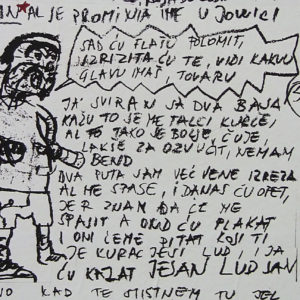 AL JE PROMINIA IME U JOVICI
SAD ĆU FLAŠU POLOMIT,
RAZRIZIT ĆU TE, VIDI KAKVU
GLAVU IMAŠ, TOVARU
JA SVIRAN SA DVA BASA
KAŽU TO ŠE ME TALCI KURČE,
AL TO TAKO JE BOLJE, ČUJE,
LAKŠE ZA OZVUČIT, NEMAM
BEND
DVA PUTA SAM VEĆ VENE IZREZA
AL ME SPASE, I DANAS ĆU OPET,
JER ZNAM DA ĆE ME
SPASIT A OND ĆU PLAKAT
I ONI ĆE ME PITAT KOSI TI
JE KURAC JESI LUD, I JA
ĆU KAZAT JESAN LUD SAN
KAD TE STISTNEM TU JEL